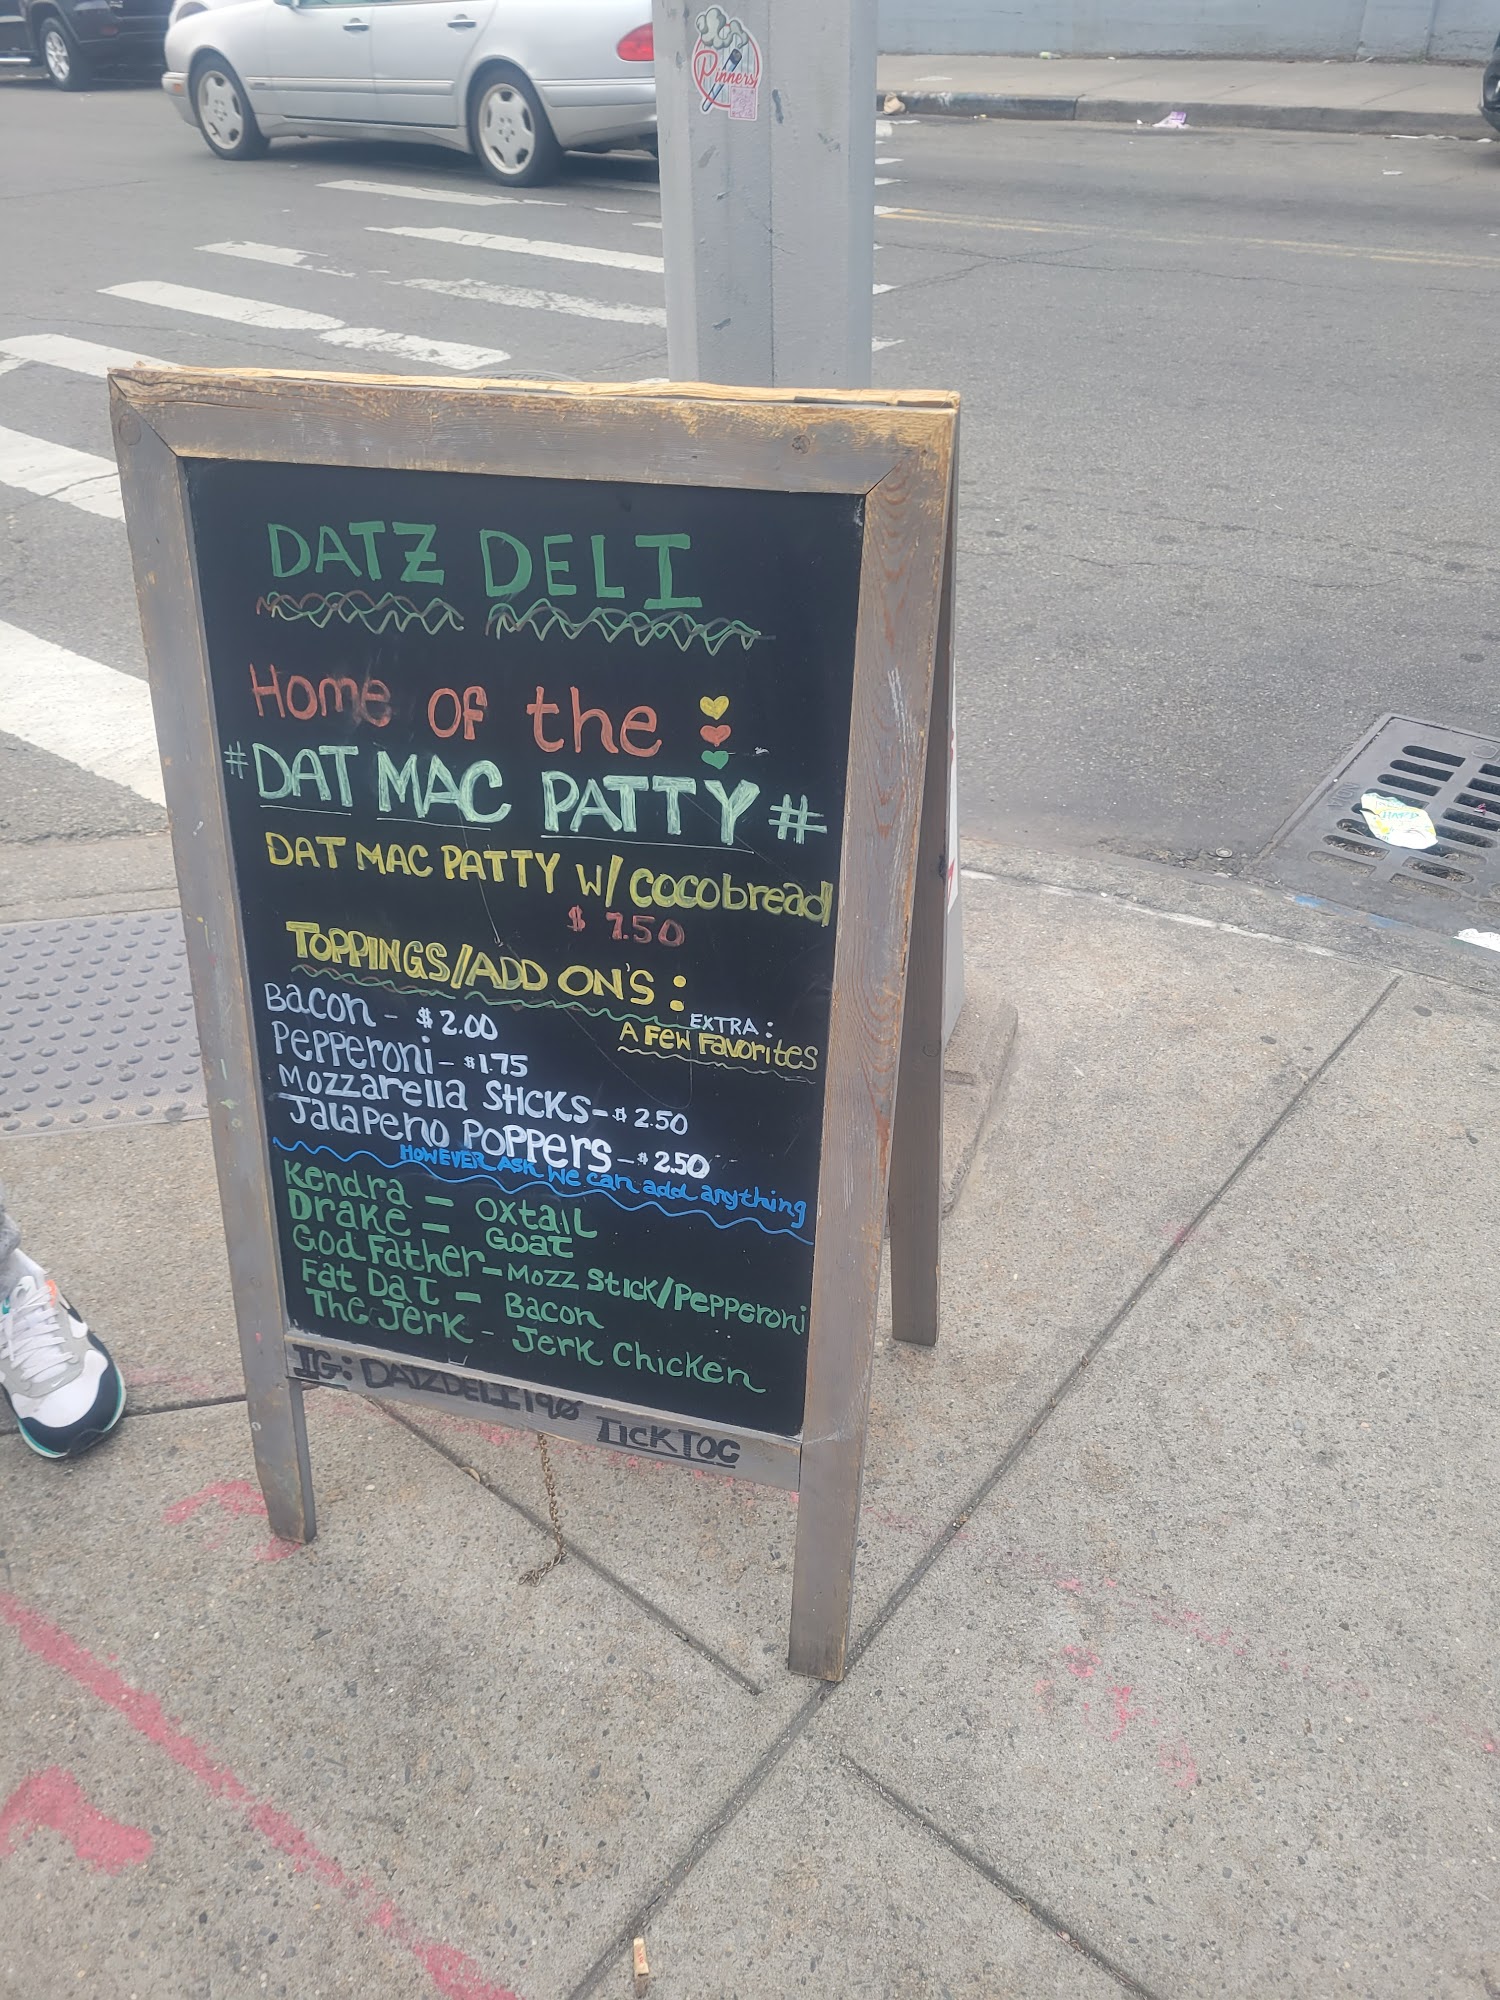 Pinners
DATZ DELI
Home of the
#DAT MAC PATTY#
DAT MAC PATTY W/ COCObread
$ 7.50
TOPPINGS/ADD ON'S:
Bacon - $2.00
EXTRA:
A FEW FAVORITES
Pepperoni - $1.75
Mozzarella Sticks - $2.50
Jalapeno Poppers - $2.50
HOWEVER ASK We can add anything
Kendra - Oxtail
Drake - Goat
God Father - Mozz Stick/Pepperoni
Fat Dat - Bacon
The Jerk - Jerk Chicken
IG: DATZDELI190 TICKTOC